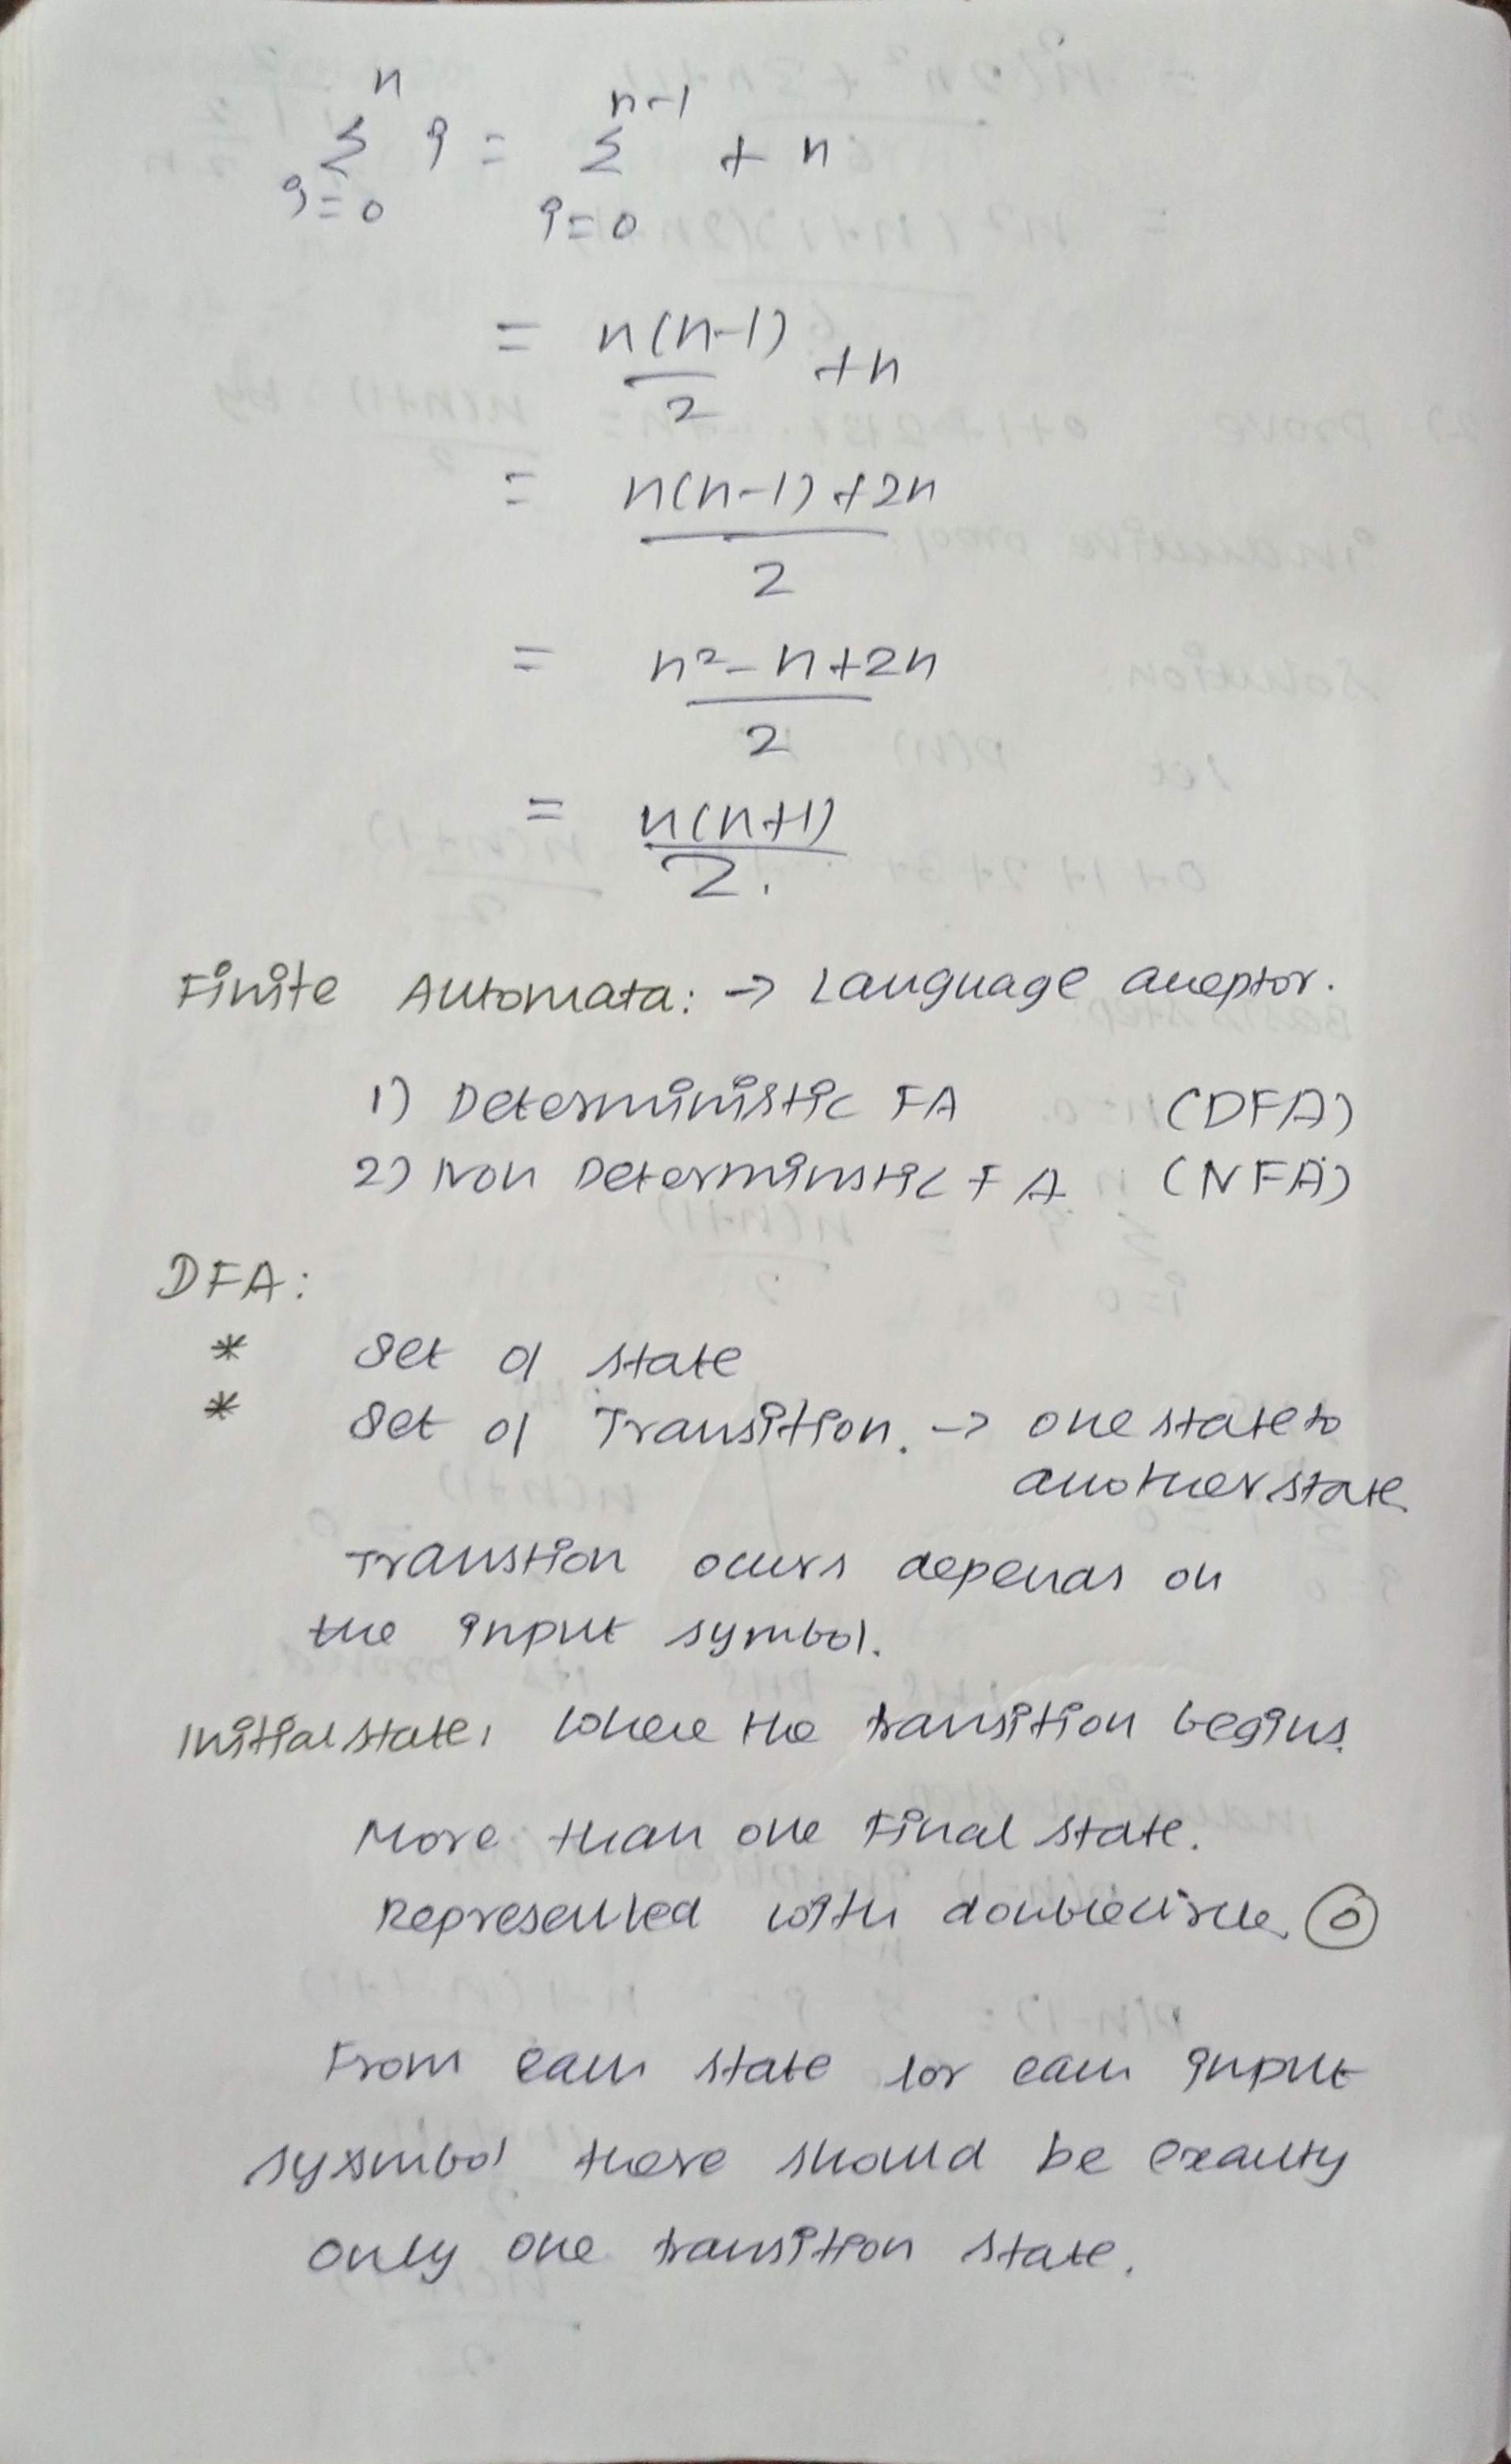 n n-1
Σ i = Σ + n
i=0 i=0
= n(n-1)/2 + n
= n(n-1)+2n
2
= n²-n+2n
2
= n(n+1)
2.
Finite Automata: → Language acceptor.
1) Deterministic FA (DFA)
2) Non Determinstic FA (NFA)
DFA:
* Set of state
* Set of Transition. → one state to
another state
Transtion occurs depends on
the input symbol.
Initial state, where the transition begins.
More than one Final state.
Represented with double circle
From each state for each input
sysmbol there should be exactly
only one transition state.